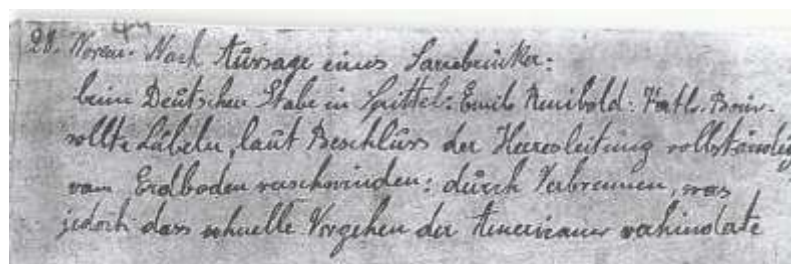 44
28. Novem. Nach Aussage eines Sarrebrücker:
beim Deutschen Stabe in Spittel: Emile Renibold:
sollte Lübeln, laut Beschluss der Heeresleitung vollständig
vom Erdboden verschwinden: durch Verbrennen, was
jedoch dass schnelle Vorgehen der Americaner verhinderte